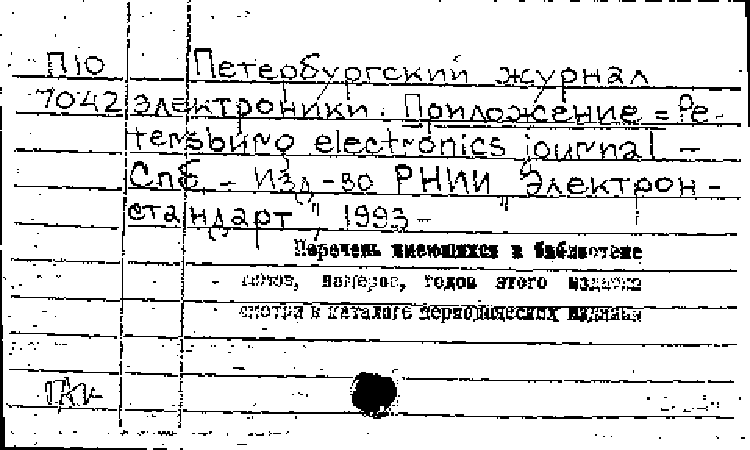 П10 Петербургский журнал
7042 электроники. Приложение = Pe-
tersburg electronics journal –
Спб. – Изд-во РНИИ "Электрон-
стандарт", 1993 –
Перечень имеющихся в библиотеке
томов, номеров, годов этого издания
смотри в каталоге периодических изданий